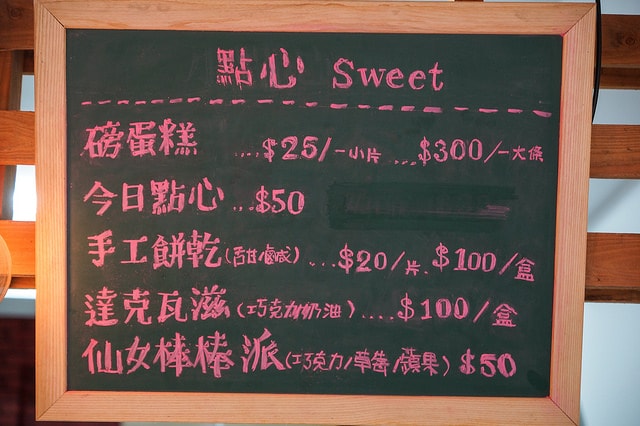 點心 Sweet
磅蛋糕 ....$25/一小片 ....$300/一大條
今日點心...$50
手工餅乾(甜鹹)...$20/片.$100/盒
達克瓦滋(巧克力奶油)....$100/盒
仙女棒棒派(巧克力/草莓/蘋果) $50